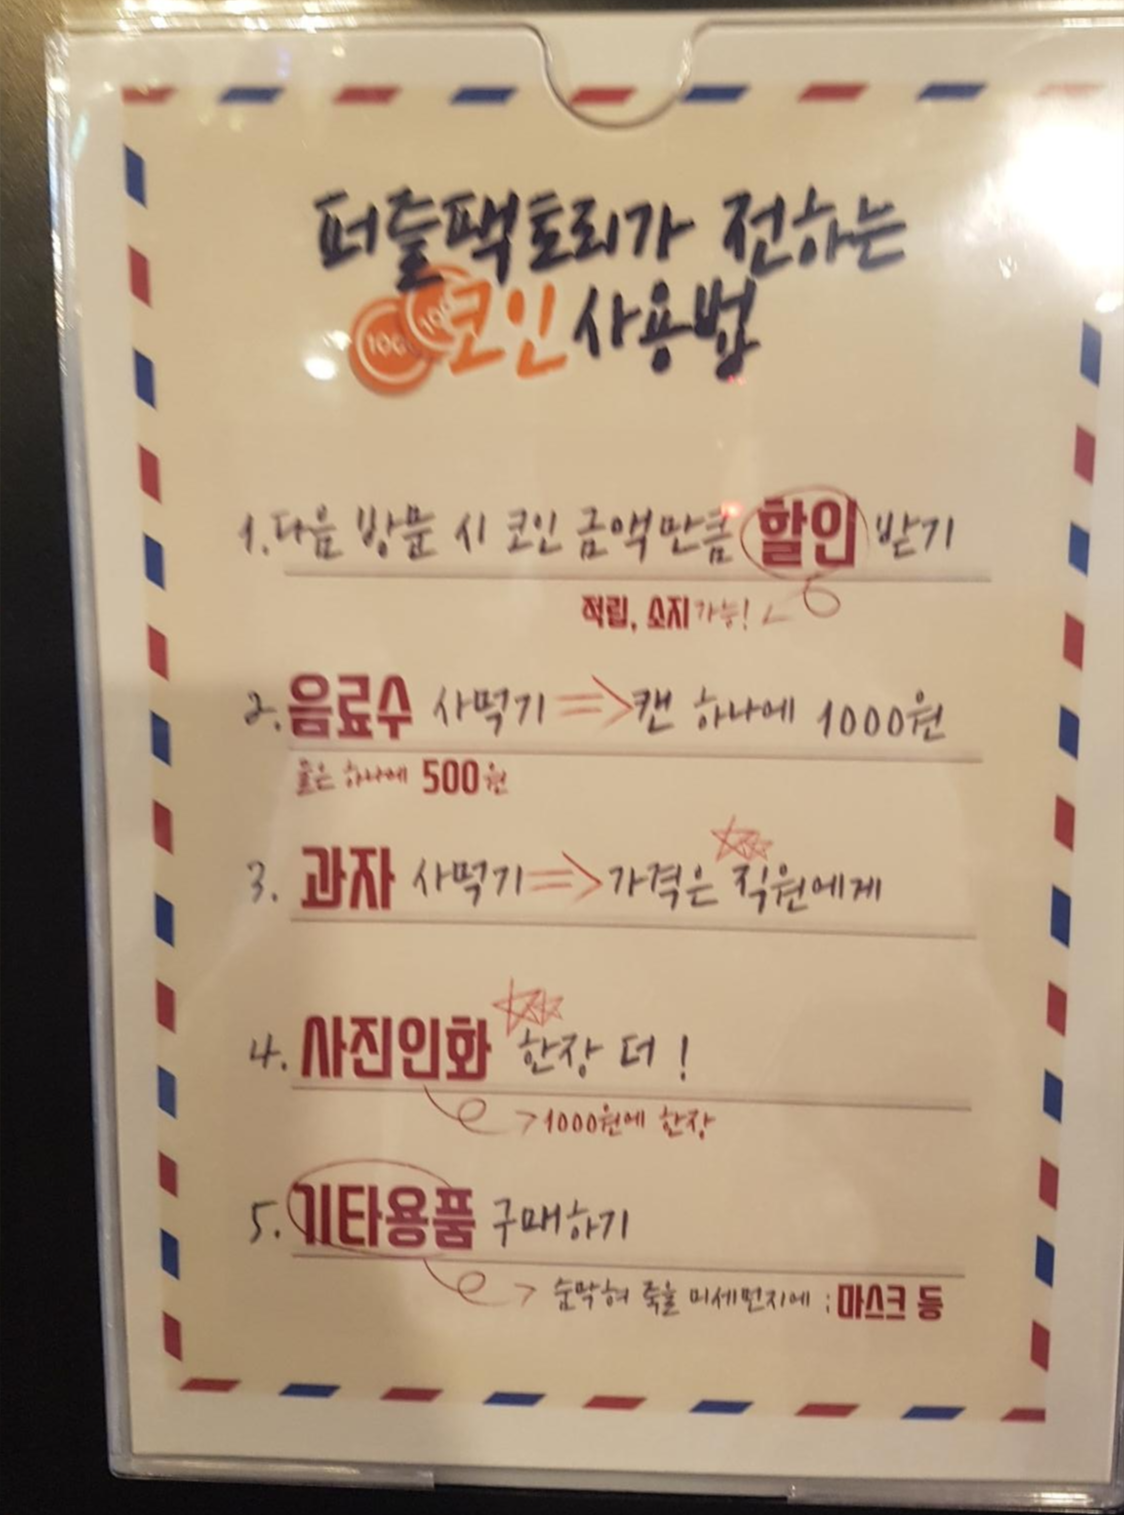 퍼즐팩토리가 전하는
코인 사용법
1. 다음 방문 시 코인 금액만큼 할인 받기
적립, 소지 가능!
2. 음료수 사먹기 => 캔 하나에 1000원
물은 하나에 500원
3. 과자 사먹기 => 가격은 직원에게
4. 사진인화 한장 더!
1000원에 한장
5. 기타용품 구매하기
숨막혀 죽을 미세먼지에 : 마스크 등